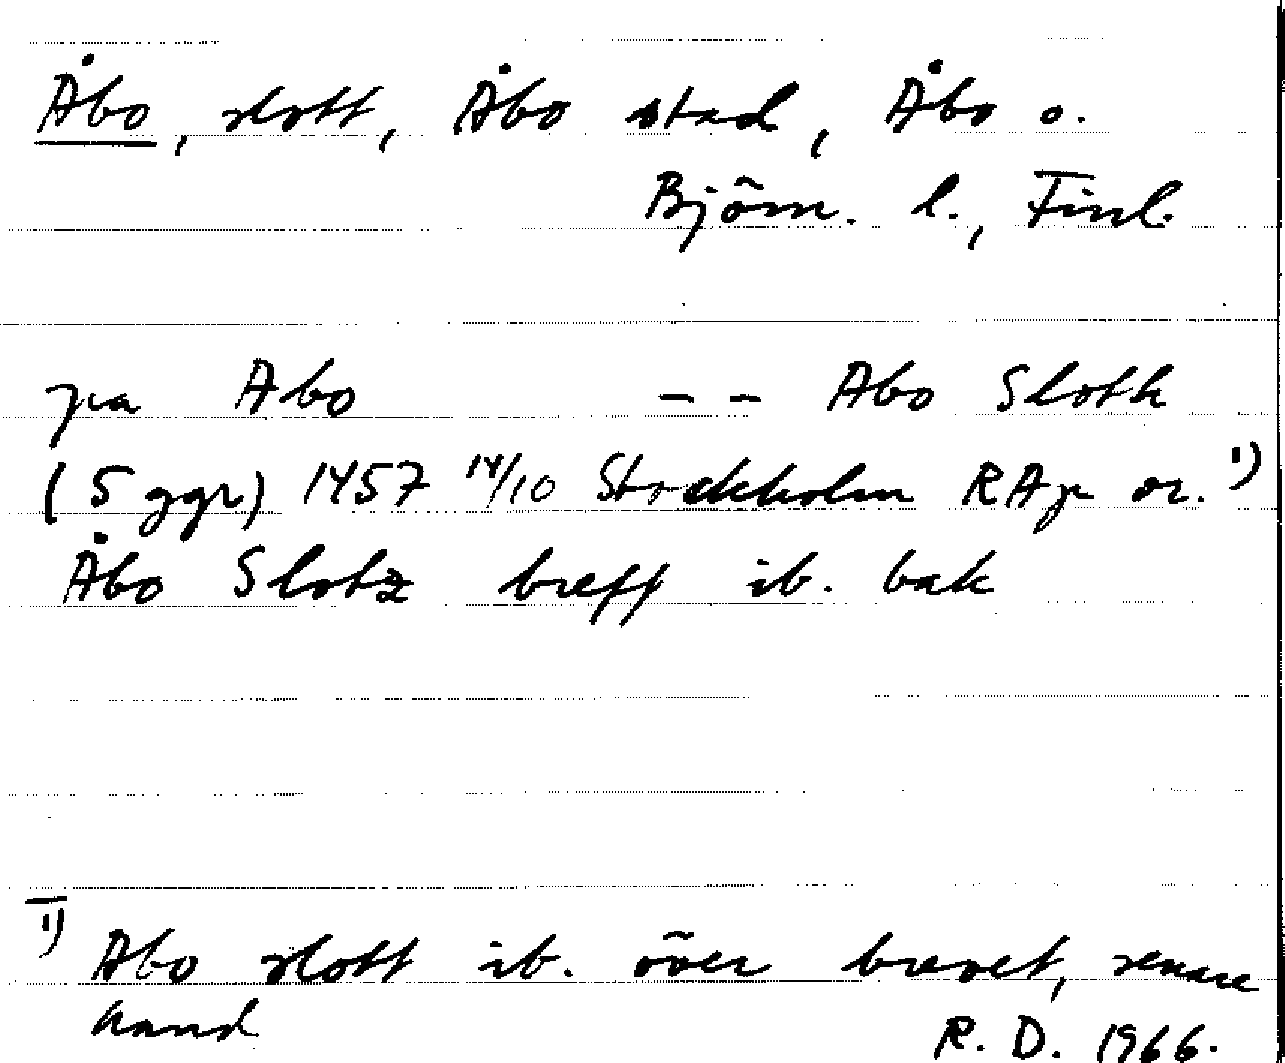 Åbo, slott, Åbo stad, Åbo o.
Björn. l., Finl.
pa Abo -- Abo Sloth
(5 ggr) 1457 14/10 Stockholm RAp or. 1)
Åbo Slotz breff ib. bak
1) Abo slott ib. över brevet, senare
hand
R. D. 1966.